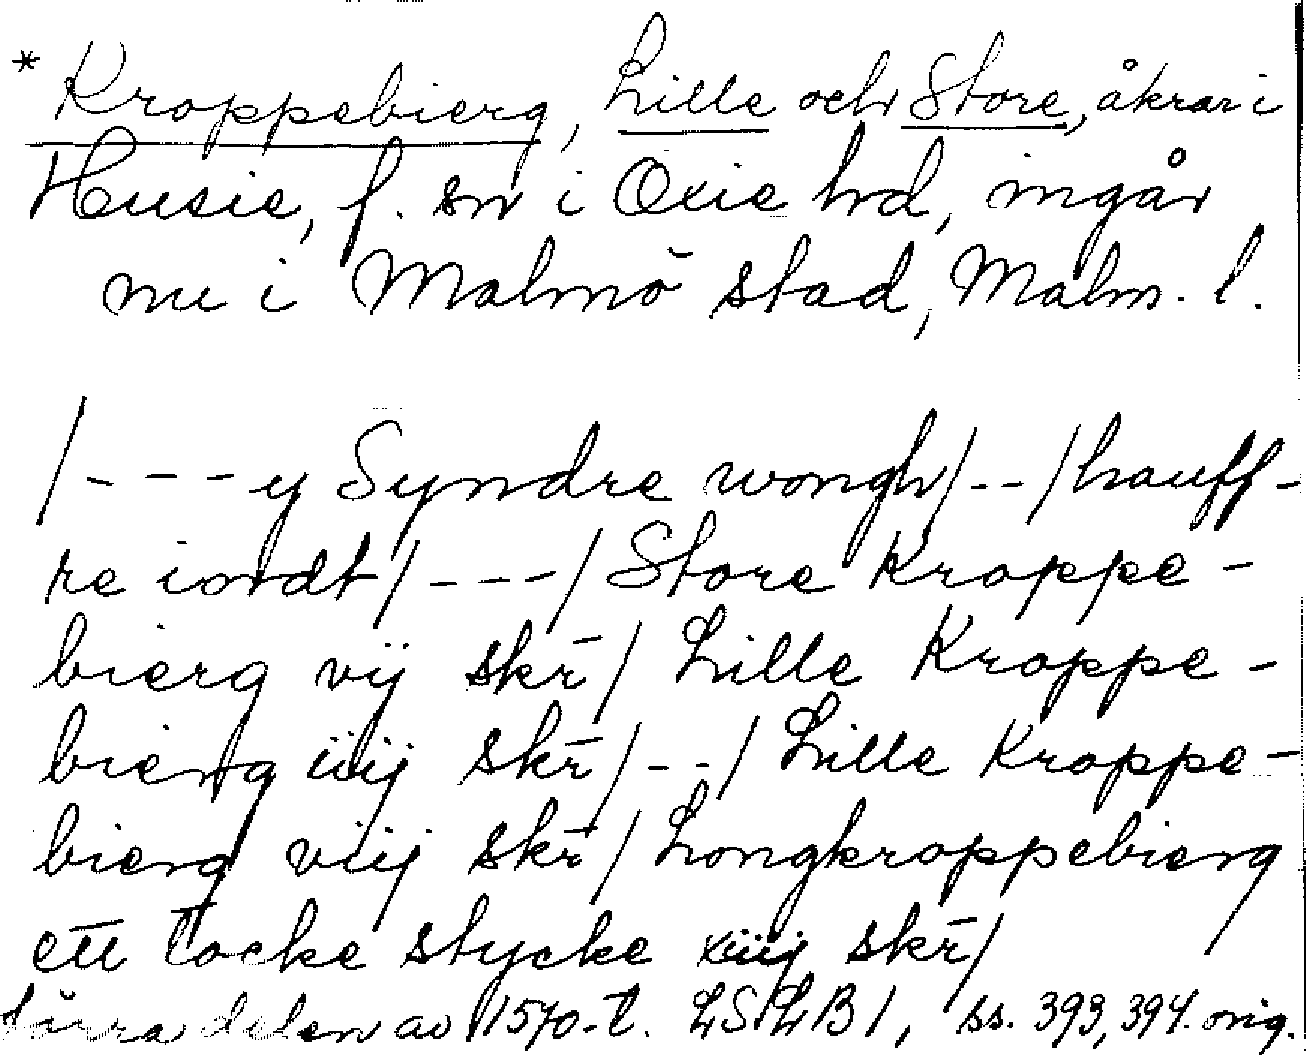 * Kroppebierg, Lille och Store, åkrar i
Husie, f. sn i Oxie hd, ingår
nu i Malmö stad, Malm. l.
/- - - y Syndre wongh/- -/ hauff-
re iordt/- - -/ Store Kroppe-
bierg vij skr̄/ Lille Kroppe-
bierg iiij skr̄/- -/ Lille Kroppe-
bierg viij skr̄/ Longkroppebierg
ett tocke stycke xiiij skr̄/
förra delen av 1570-t. LSLB 1, ss. 393, 394. orig.